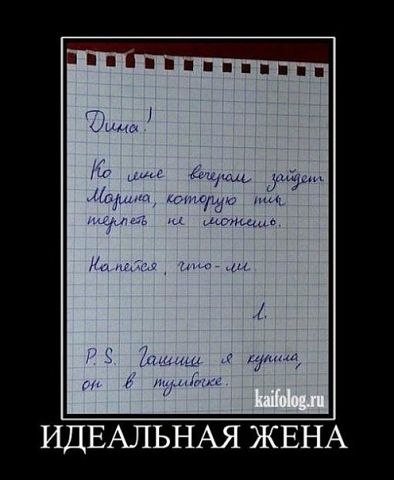 Дима!
Ко мне вечерам зайдет
Марина, которую ты
терпеть не можешь.
Напейся, что-ли.
Л.
P.S. Гашиш я купила,
он в тумбочке.
kaifolog.ru
ИДЕАЛЬНАЯ ЖЕНА